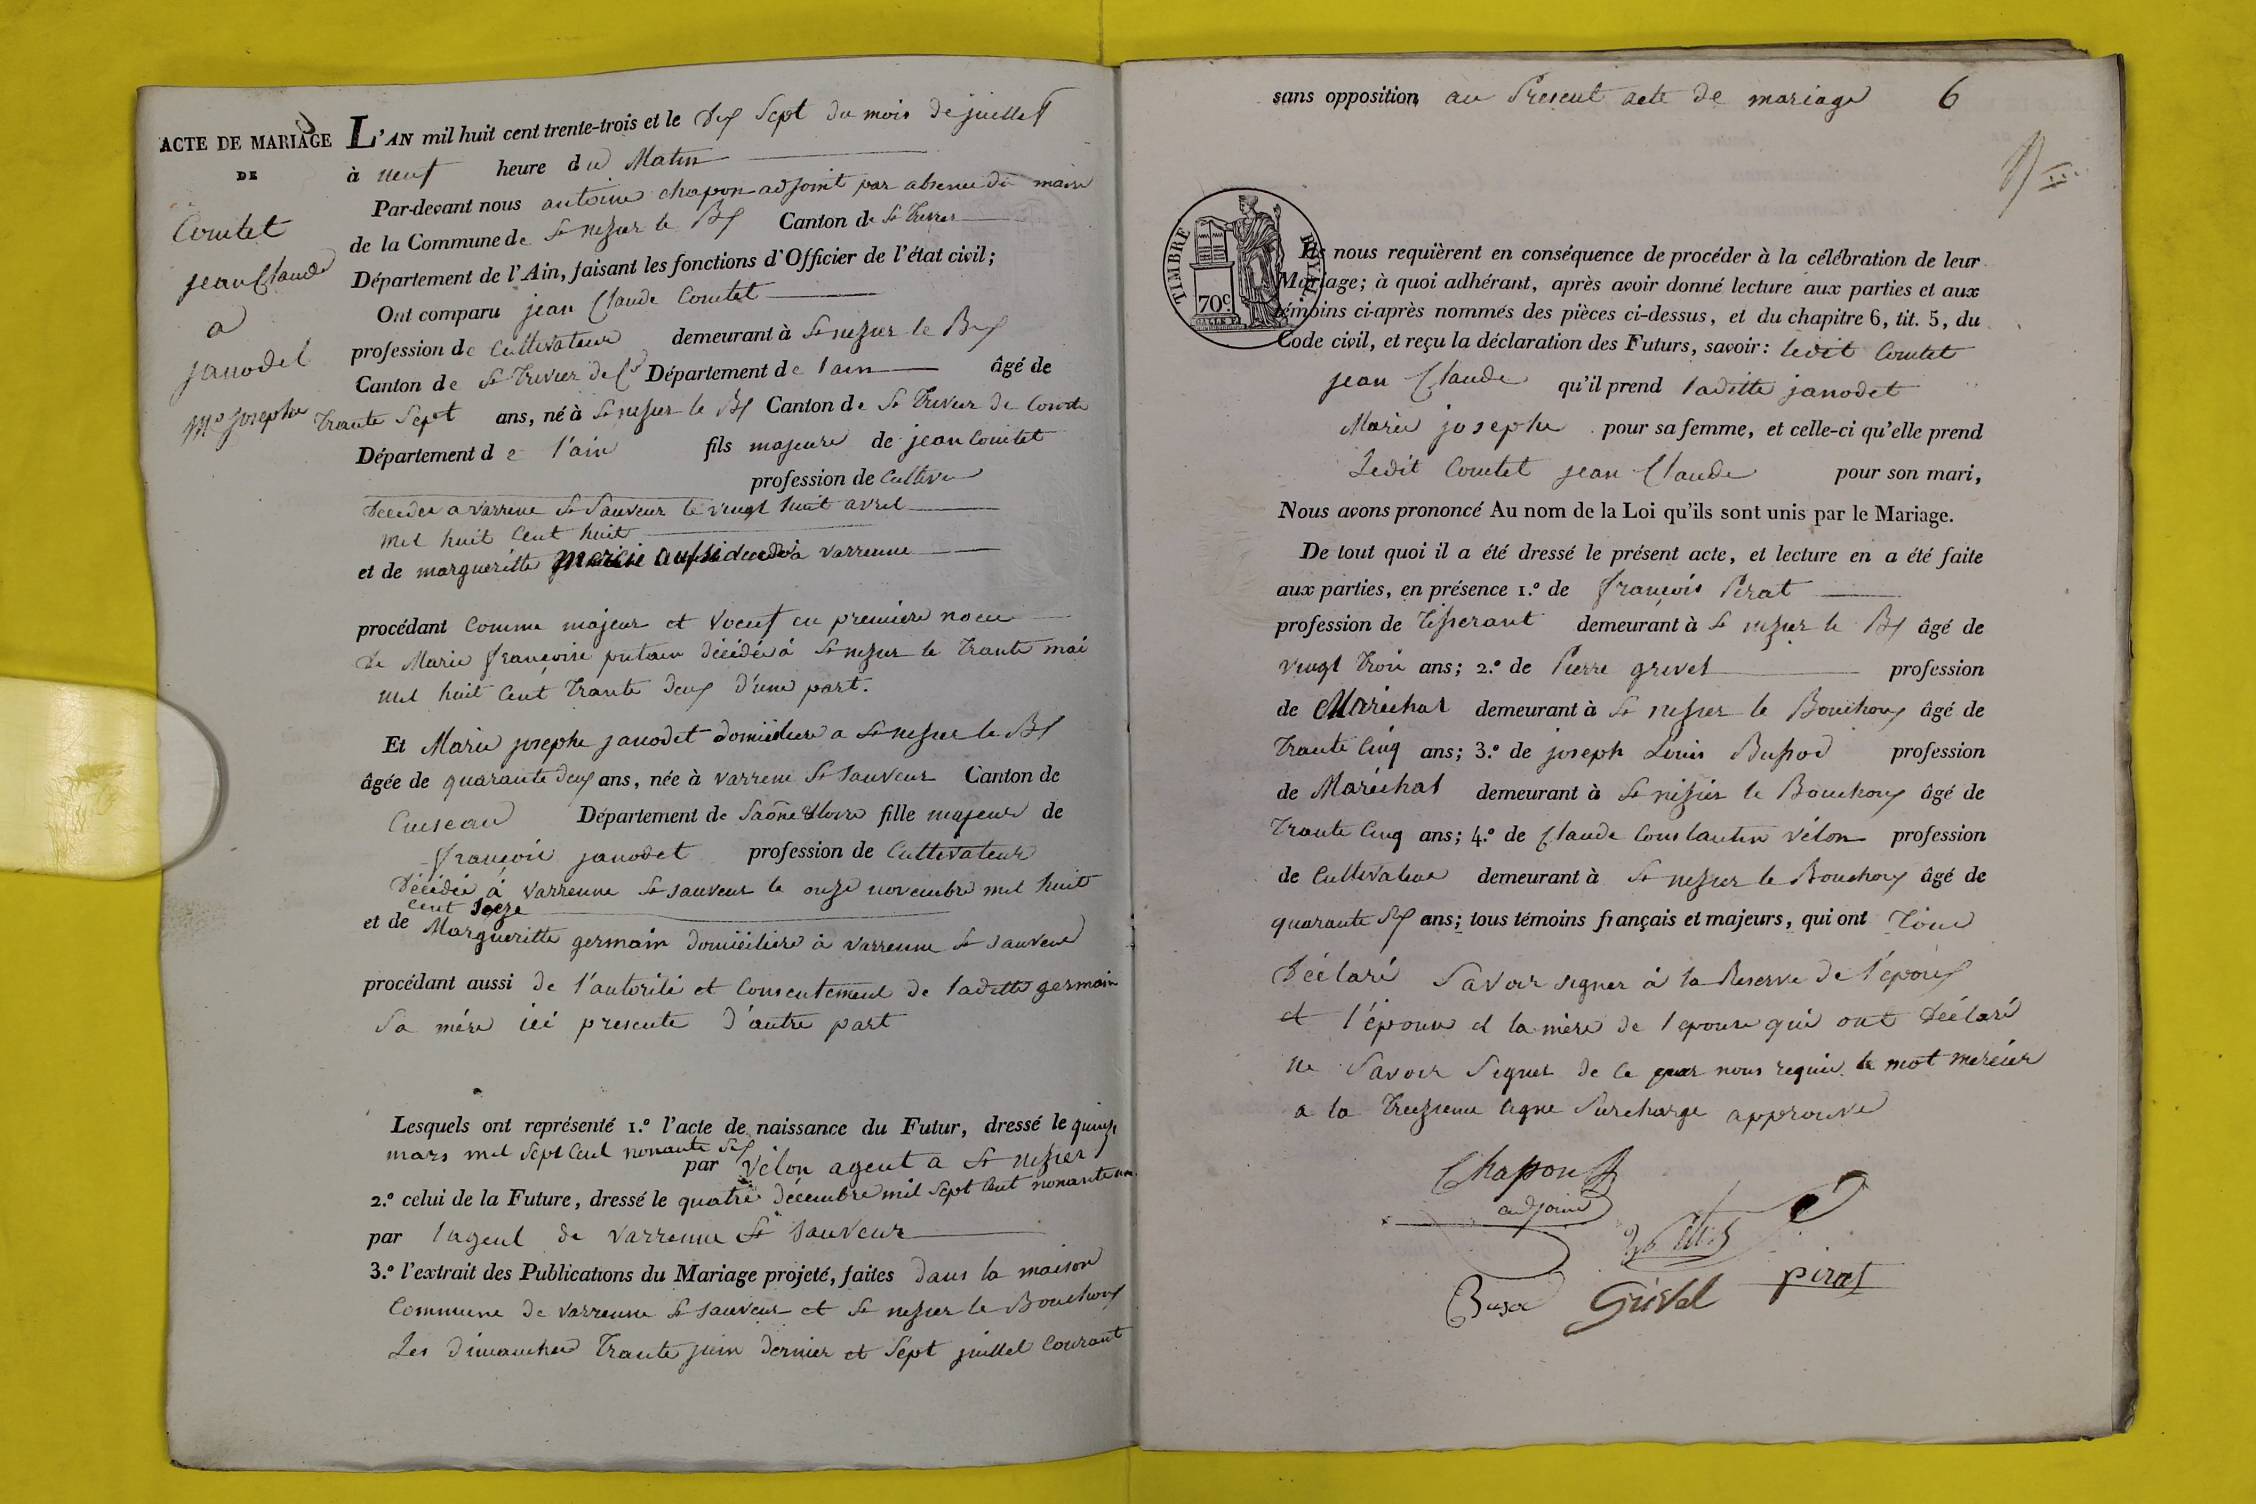 ACTE DE MARIAGE
DE
Comtet
jean Claude
a
janodet
Mie josephe
L'AN mil huit cent trente-trois et le dix Sept du mois de juillet
à neuf heure du Matin
Par-devant nous antoine chapon adjoint par absence du maire
de la Commune de St nizier le Bx Canton de St Trivier
Département de l'Ain, faisant les fonctions d'Officier de l'état civil;
Ont comparu jean Claude Comtet
profession de Cultivateur demeurant à St nizier le Bx
Canton de St Trivier de Cs Département de l'ain âgé de
Trante Sept ans, né à St nizier le Bx Canton de St Trivier de Courte
Département de l'ain fils majeure de jean Comtet
profession de Cultiveur
décédée a varrene St Sauveur le vingt huit avril
mil huit Cent huit
et de margueritte mercier aussi decedé à varrenne
procédant Comme majeur et voeuf en premiere noeu
de Marie françoise putain décédée à St nizier le Trante mai
mil huit Cent Trante deux d'une part.
Et Marie josephe janodet domiciliere a St nizier le Bx
âgée de quarante deux ans, née à varrene St Sauveur Canton de
Cuiseau Département de Saône & loire fille majeure de
françois janodet profession de Cultivateur
Décédée à varrenne St sauveur le onze novembre mil huit
Cent Seize
et de Margueritte germain domiciliere à varrenne St sauveur
procédant aussi de l'autorité et Consentement de laditte germain
Sa mére ici presente d'autre part
Lesquels ont représenté 1.º l'acte de naissance du Futur, dressé le quinze
mars mil Sept Cent nonante Six
par vélon agent a St nizier
2.º celui de la Future, dressé le quatre décembre mil Sept Cent nonante un
par l'agent de varrenne St Sauveur
3.º l'extrait des Publications du Mariage projeté, faites dans la maison
Commune de varrenne St sauveur et St nizier le Bouchoux
Les dimanches Trante juin dernier et Sept juillet Courant
sans opposition au Present acte de mariage 6
TIMBRE ROYAL
70c
Ils nous requièrent en conséquence de procéder à la célébration de leur
Mariage; à quoi adhérant, après avoir donné lecture aux parties et aux
témoins ci-après nommés des pièces ci-dessus, et du chapitre 6, tit. 5, du
Code civil, et reçu la déclaration des Futurs, savoir: ledit Comtet
jean Claude qu'il prend laditte janodet
Marie josephe pour sa femme, et celle-ci qu'elle prend
Ledit Comtet jean Claude pour son mari,
Nous avons prononcé Au nom de la Loi qu'ils sont unis par le Mariage.
De tout quoi il a été dressé le présent acte, et lecture en a été faite
aux parties, en présence 1.º de françois Perat
profession de Tisserant demeurant à St nizier le Bx âgé de
vingt Trois ans; 2.º de Pierre grevet profession
de Maréchal demeurant à St nizier le Bouchoux âgé de
Trante Cinq ans; 3.º de joseph Louis Bussod profession
de Maréchal demeurant à St nizier le Bouchoux âgé de
Trante Cinq ans; 4.º de Claude Constantin vélon profession
de Cultivateur demeurant à St nizier le Bouchoux âgé de
quarante Six ans; tous témoins français et majeurs, qui ont Tous
Déclaré Savoir signer à la Reserve de l'époux
et l'épouse et la mère de l'epouse qui ont Déclaré
ne Savoir Signer de Ce par nous requis. le mot mercier
a la Treizieme ligne Surcharge approuve
Chapon
adjoint
Busod Grevel pirat